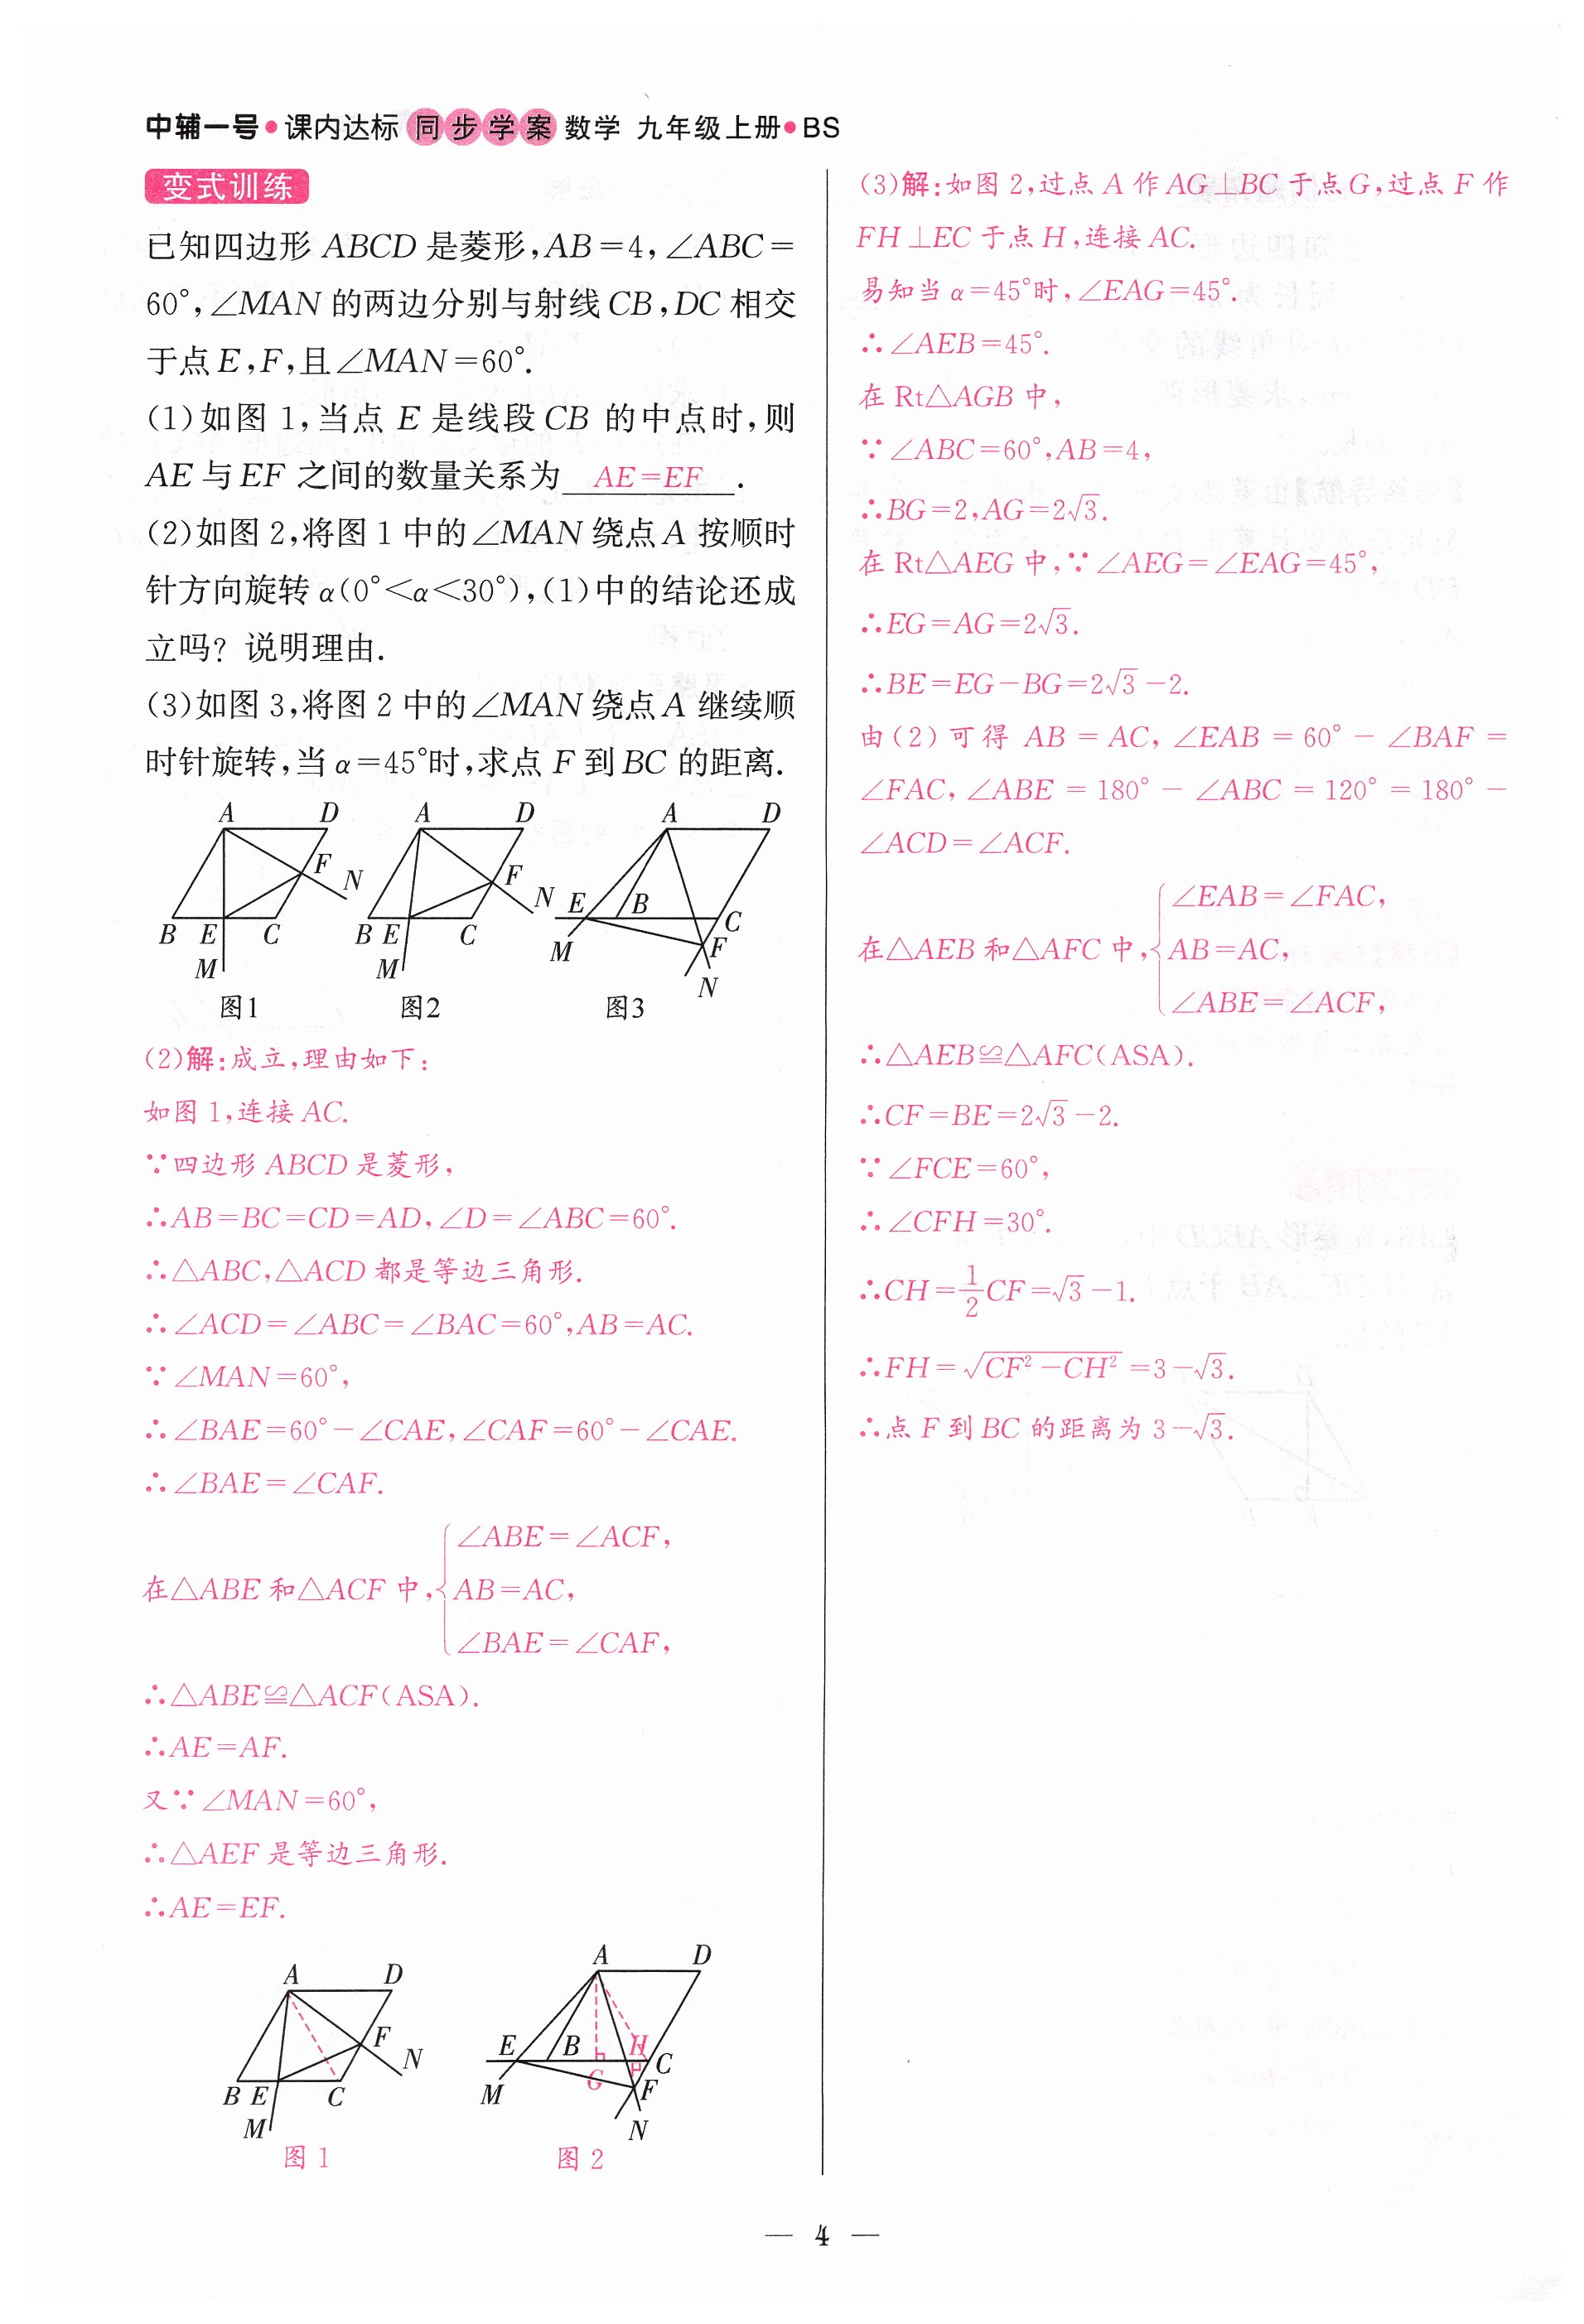 中辅一号·课内达标 同步学案 数学 九年级上册·BS
变式训练
已知四边形 ABCD 是菱形,AB=4,∠ABC=
60°,∠MAN 的两边分别与射线 CB,DC 相交
于点 E,F,且∠MAN=60°.
(1)如图 1,当点 E 是线段 CB 的中点时,则
AE 与 EF 之间的数量关系为 AE=EF .
(2)如图 2,将图 1 中的∠MAN 绕点 A 按顺时
针方向旋转 α(0°<α<30°),(1)中的结论还成
立吗? 说明理由.
(3)如图 3,将图 2 中的∠MAN 绕点 A 继续顺
时针旋转,当 α=45°时,求点 F 到 BC 的距离.
A D F N B E C M
图1
A D F N B E C M
图2
A D E B C M F N
图3
(2)解:成立,理由如下:
如图 1,连接 AC.
∵四边形 ABCD 是菱形,
∴AB=BC=CD=AD,∠D=∠ABC=60°.
∴△ABC,△ACD 都是等边三角形.
∴∠ACD=∠ABC=∠BAC=60°,AB=AC.
∵∠MAN=60°,
∴∠BAE=60°-∠CAE,∠CAF=60°-∠CAE.
∴∠BAE=∠CAF.
∠ABE=∠ACF,
在△ABE 和△ACF 中,{AB=AC,
∠BAE=∠CAF,
∴△ABE≌△ACF(ASA).
∴AE=AF.
又∵∠MAN=60°,
∴△AEF 是等边三角形.
∴AE=EF.
A D F N B E C M
图 1
A D E B H C G M F N
图 2
(3)解:如图 2,过点 A 作 AG⊥BC 于点 G,过点 F 作
FH⊥EC 于点 H,连接 AC.
易知当 α=45°时,∠EAG=45°.
∴∠AEB=45°.
在 Rt△AGB 中,
∵∠ABC=60°,AB=4,
∴BG=2,AG=2√3.
在 Rt△AEG 中,∵∠AEG=∠EAG=45°,
∴EG=AG=2√3.
∴BE=EG-BG=2√3-2.
由(2)可得 AB = AC, ∠EAB = 60° - ∠BAF =
∠FAC, ∠ABE = 180° - ∠ABC = 120° = 180° -
∠ACD=∠ACF.
∠EAB=∠FAC,
在△AEB 和△AFC 中,{AB=AC,
∠ABE=∠ACF,
∴△AEB≌△AFC(ASA).
∴CF=BE=2√3-2.
∵∠FCE=60°,
∴∠CFH=30°.
∴CH=1/2CF=√3-1.
∴FH=√(CF²-CH²)=3-√3.
∴点 F 到 BC 的距离为 3-√3.
— 4 —